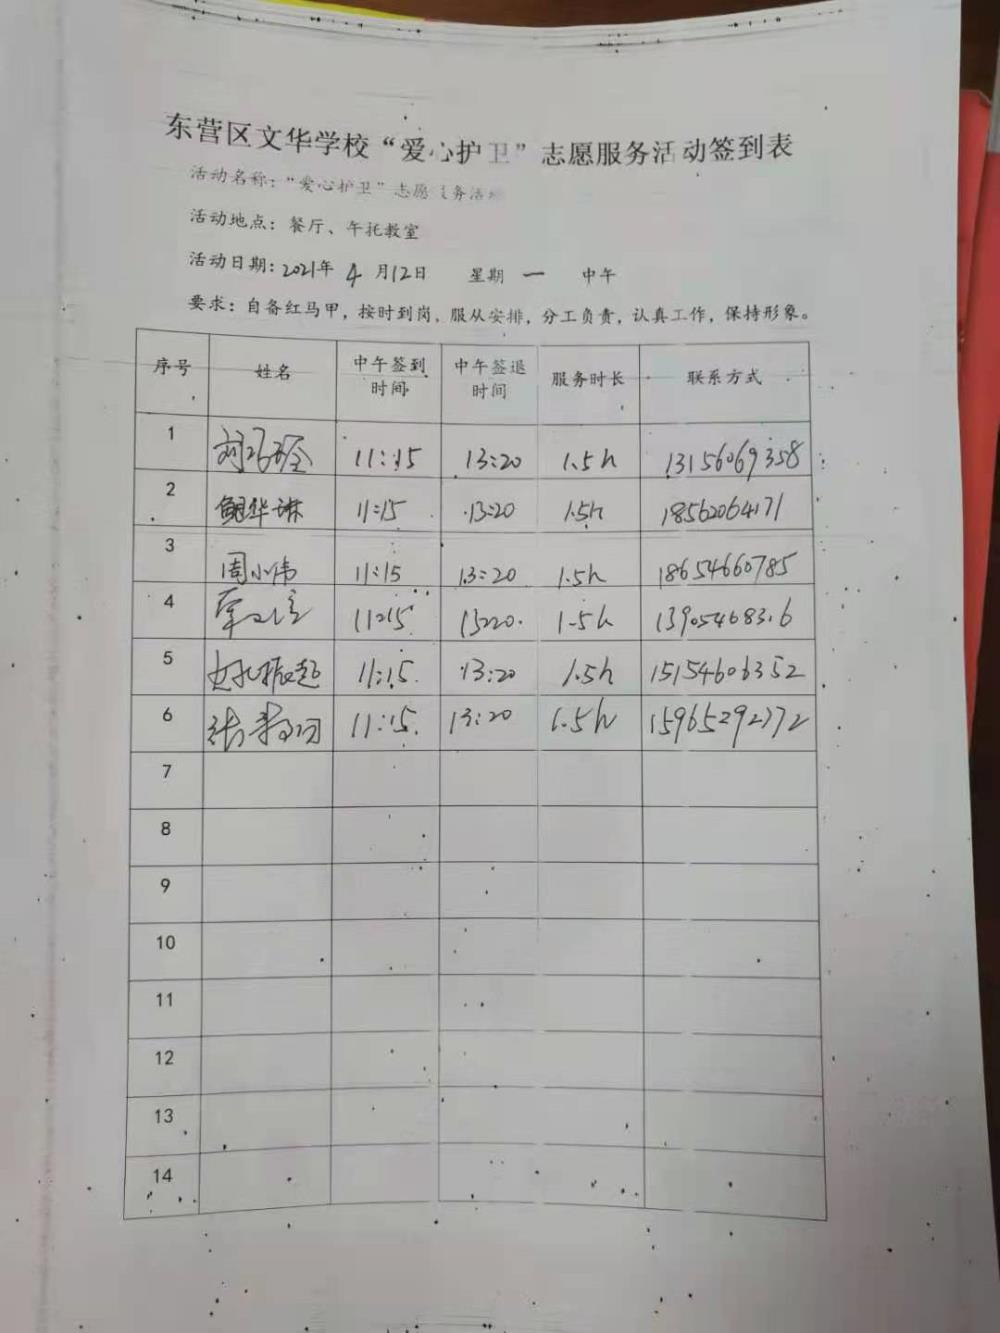 东营区文华学校“爱心护卫”志愿服务活动签到表
活动名称：“爱心护卫”志愿服务活动
活动地点：餐厅、午托教室
活动日期：2021年 4 月12日 星期 一 中午
要求：自备红马甲，按时到岗，服从安排，分工负责，认真工作，保持形象。
序号 姓名 中午签到时间 中午签退时间 服务时长 联系方式
1 11:15 13:20 1.5h 13156069358
2 11:15 13:20 1.5h 18562064171
3 周小伟 11:15 13:20 1.5h 18654660785
4 11:15 13:20 1.5h
5 11:15 13:20 1.5h 15154606352
6 11:15 13:20 1.5h 15965292772
7
8
9
10
11
12
13
14